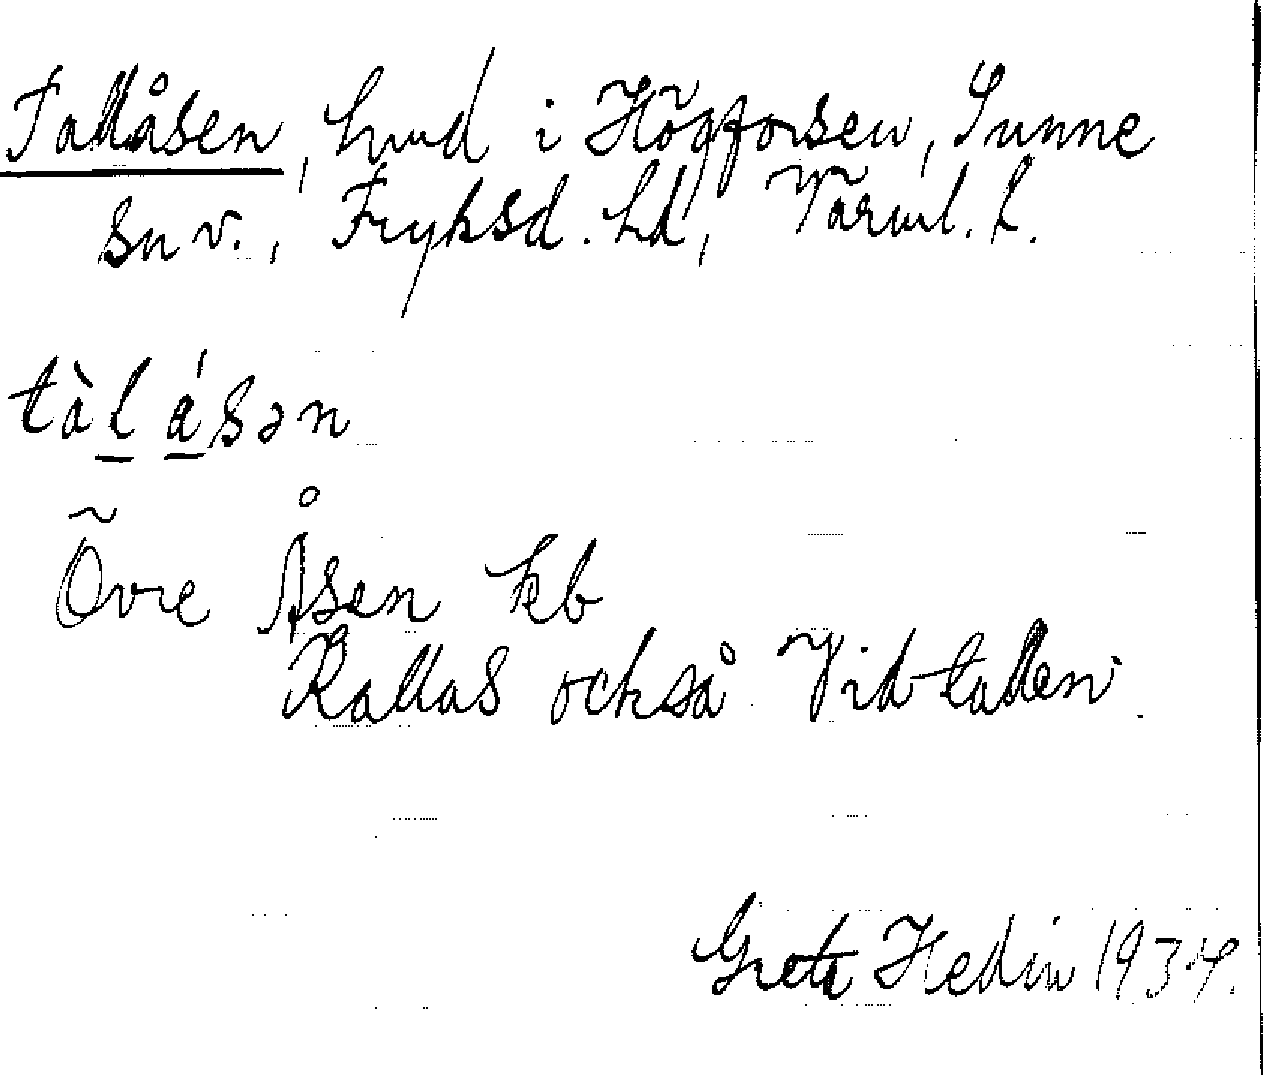 Tallåsen, hmd i Högforsen, Sunne
sn v., Fryksd. hd, Värml. l.
tàl ásən
Övre Åsen kb
Kallas också Vid tallen.
Greta Hedin 1934.